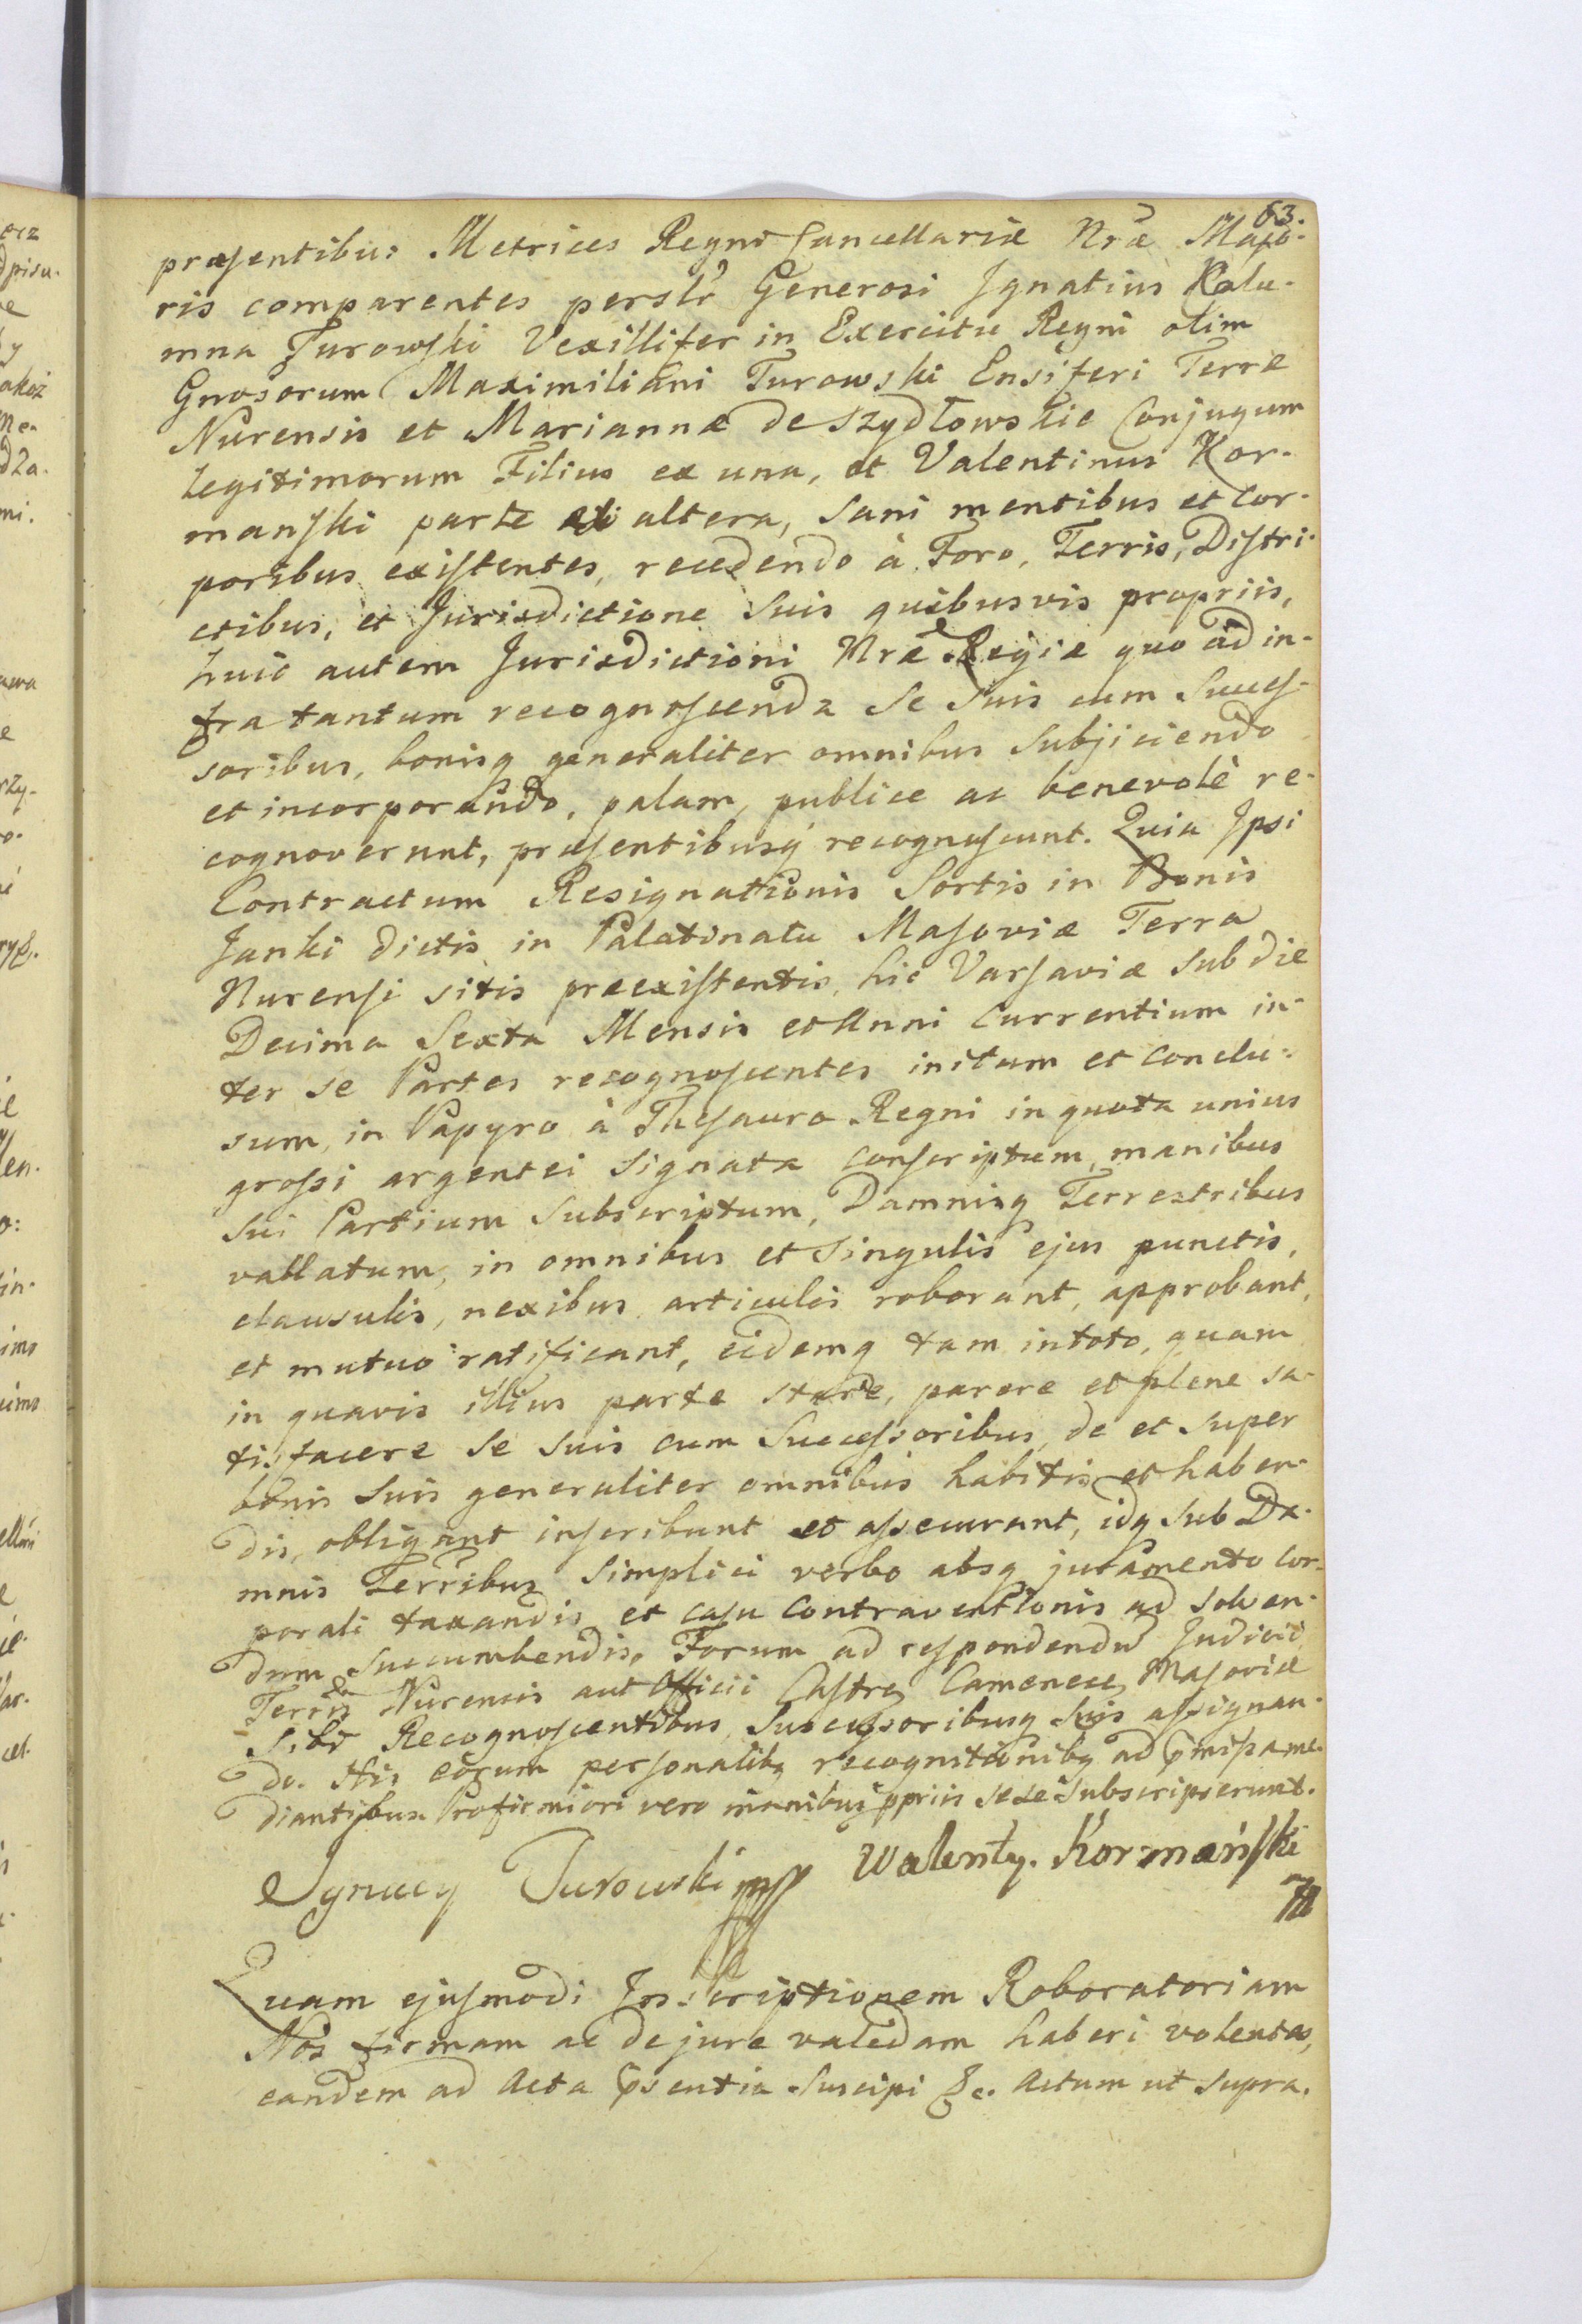 63.
præsentibus Metrices Regni Cancellariæ Nræ Majo-
ris comparentes perslr Generosi Ignatius Kolu-
mna Turowski Vexillifer in Exercitu Regni olim
Gnosorum Maximiliani Turowski Ensiferi Terræ
Nurensis et Mariannæ de Szydłowskie Conjugum
Legitimorum Filius ex una, et Valentinus Kor-
manski parte ex altera, sani mentibus et Cor-
poribus existentes, recedendo à Foro, Terris, Distri-
ctibus, et Jurisdictione Suis quibusvis propriis,
huic autem Jurisdictioni Nræ Regiæ quo ad in-
fra tantum recognoscenda Se Suis cum Succes-
soribus, bonisq generaliter omnibus Subjiciendo
et incorporando, palam, publice ac benevolè re-
cognoverunt, præsentibusq recognoscunt. Quia Ipsi
Contractum Resignationis Sortis in Bonis
Janki dictis in Palatinatu Masoviæ Terra
Nurensi sitis præexistentis, hic Varsaviæ sub die
Decima Sexta Mensis et Anni Currentium in-
ter se Partes recognoscentes initum et Conclu-
sum, in Papyro à Thesauro Regni in quota unius
grossi argentei Signata Conscriptum, manibus
Sui Partium Subscriptum, Damnisq Terrestribus
vallatum, in omnibus et Singulis ejus punctis,
clausulis, nexibus articulis roborant, approbant,
et mutuo ratificant, eidemq tam in toto, quam
in quavis illius parte stare, parere et plene sa-
tisfacere se suis cum Successoribus, de et Super
bonis Suis generaliter omnibus habitis et haben-
dis, obligant inscribunt et assecurant, idq Sub Da-
mnis Terribus Simplici verbo absq juramento Cor-
porali taxandis et casu Contraventionis ad solven-
dum Succumbendis, Forum ad respondendu Judicii
Terris Nurensis aut Officii Castren Camenecen Masoviæ
Sibi Recognoscentibus, Successoribusq Suis assignan-
do. His eorum personalibq recognitionibq ad pmissa me-
diantibus Pro firmiori vero manibus ppriis sese subscripserunt.
Ignacy Turowski mpp Walenty. Kormański
m
Quam ejusmodi Inscriptionem Roboratoriam
Nos firmam ac de jure validam haberi volentes,
eandem ad Acta psentia Suscipi &c. Actum ut supra.